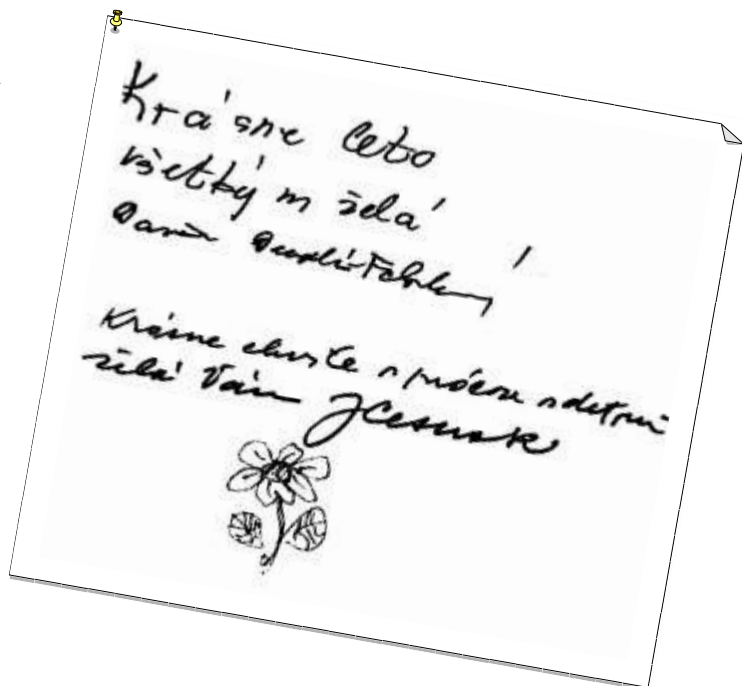 Krásne leto
všetkým želá
Krásne chvíle s prácou s deťmi
želá Vám